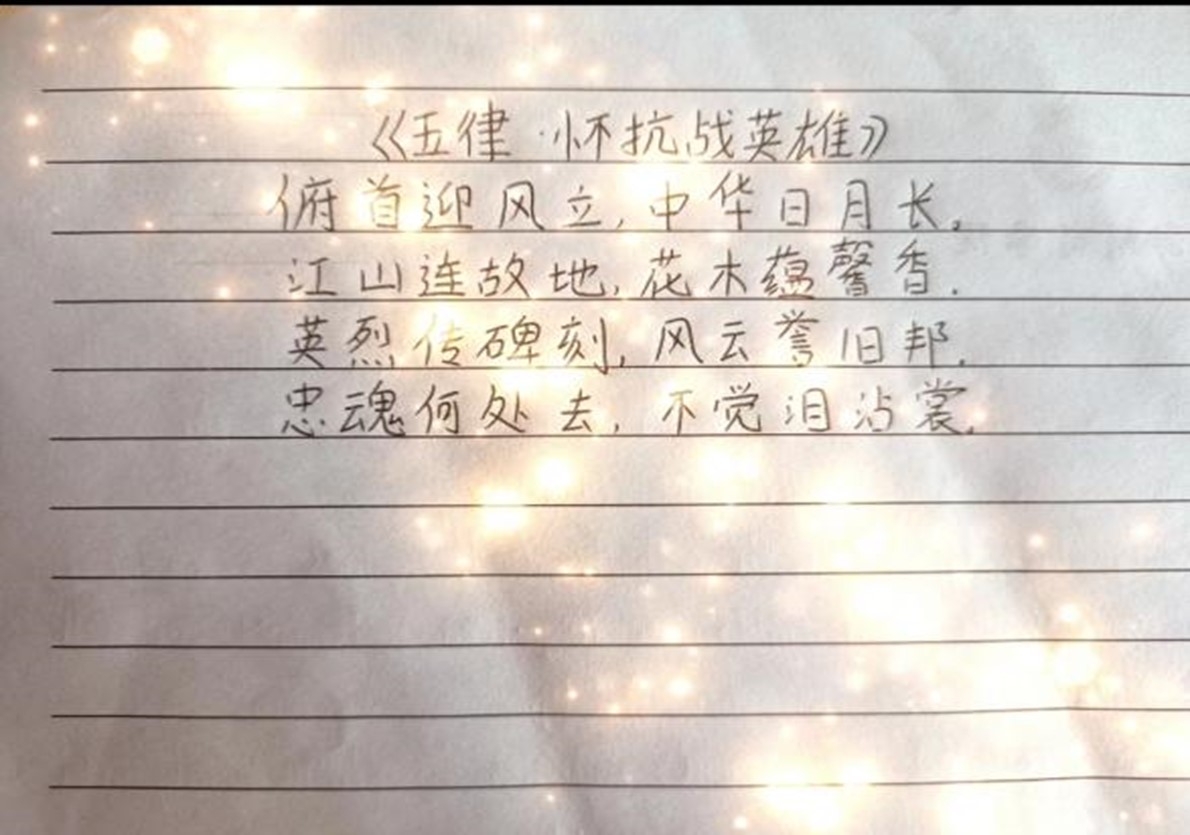 《五律·怀抗战英雄》
俯首迎风立,中华日月长。
江山连故地,花木蕴馨香.
英烈传碑刻,风云誉旧邦.
忠魂何处去,不觉泪沾裳.